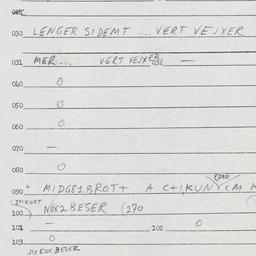 030 LENGER SIDEMT ... VERT VEJXER
031 MER... VERT VEJXER 032 —
040 O
050 O
060 O
070 —
080 O
090 + MIDG81BROT+ A
100 NOX2BESER (270
101 — 102 O
103 O
JIXKOXBESER